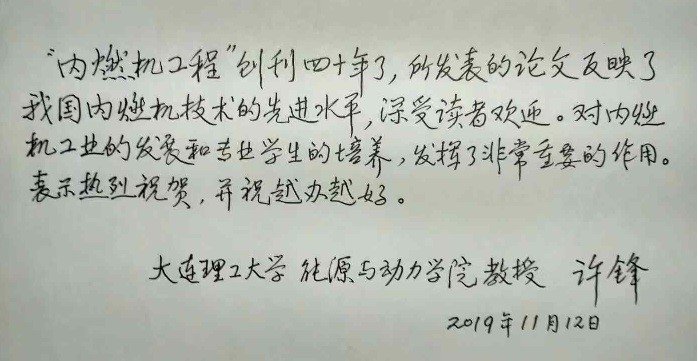 “内燃机工程”创刊四十年了，所发表的论文反映了
我国内燃机技术的先进水平，深受读者欢迎。对内燃
机工业的发展和专业学生的培养，发挥了非常重要的作用。
表示热烈祝贺，并祝越办越好。
大连理工大学 能源与动力学院 教授 许锋
2019年11月12日